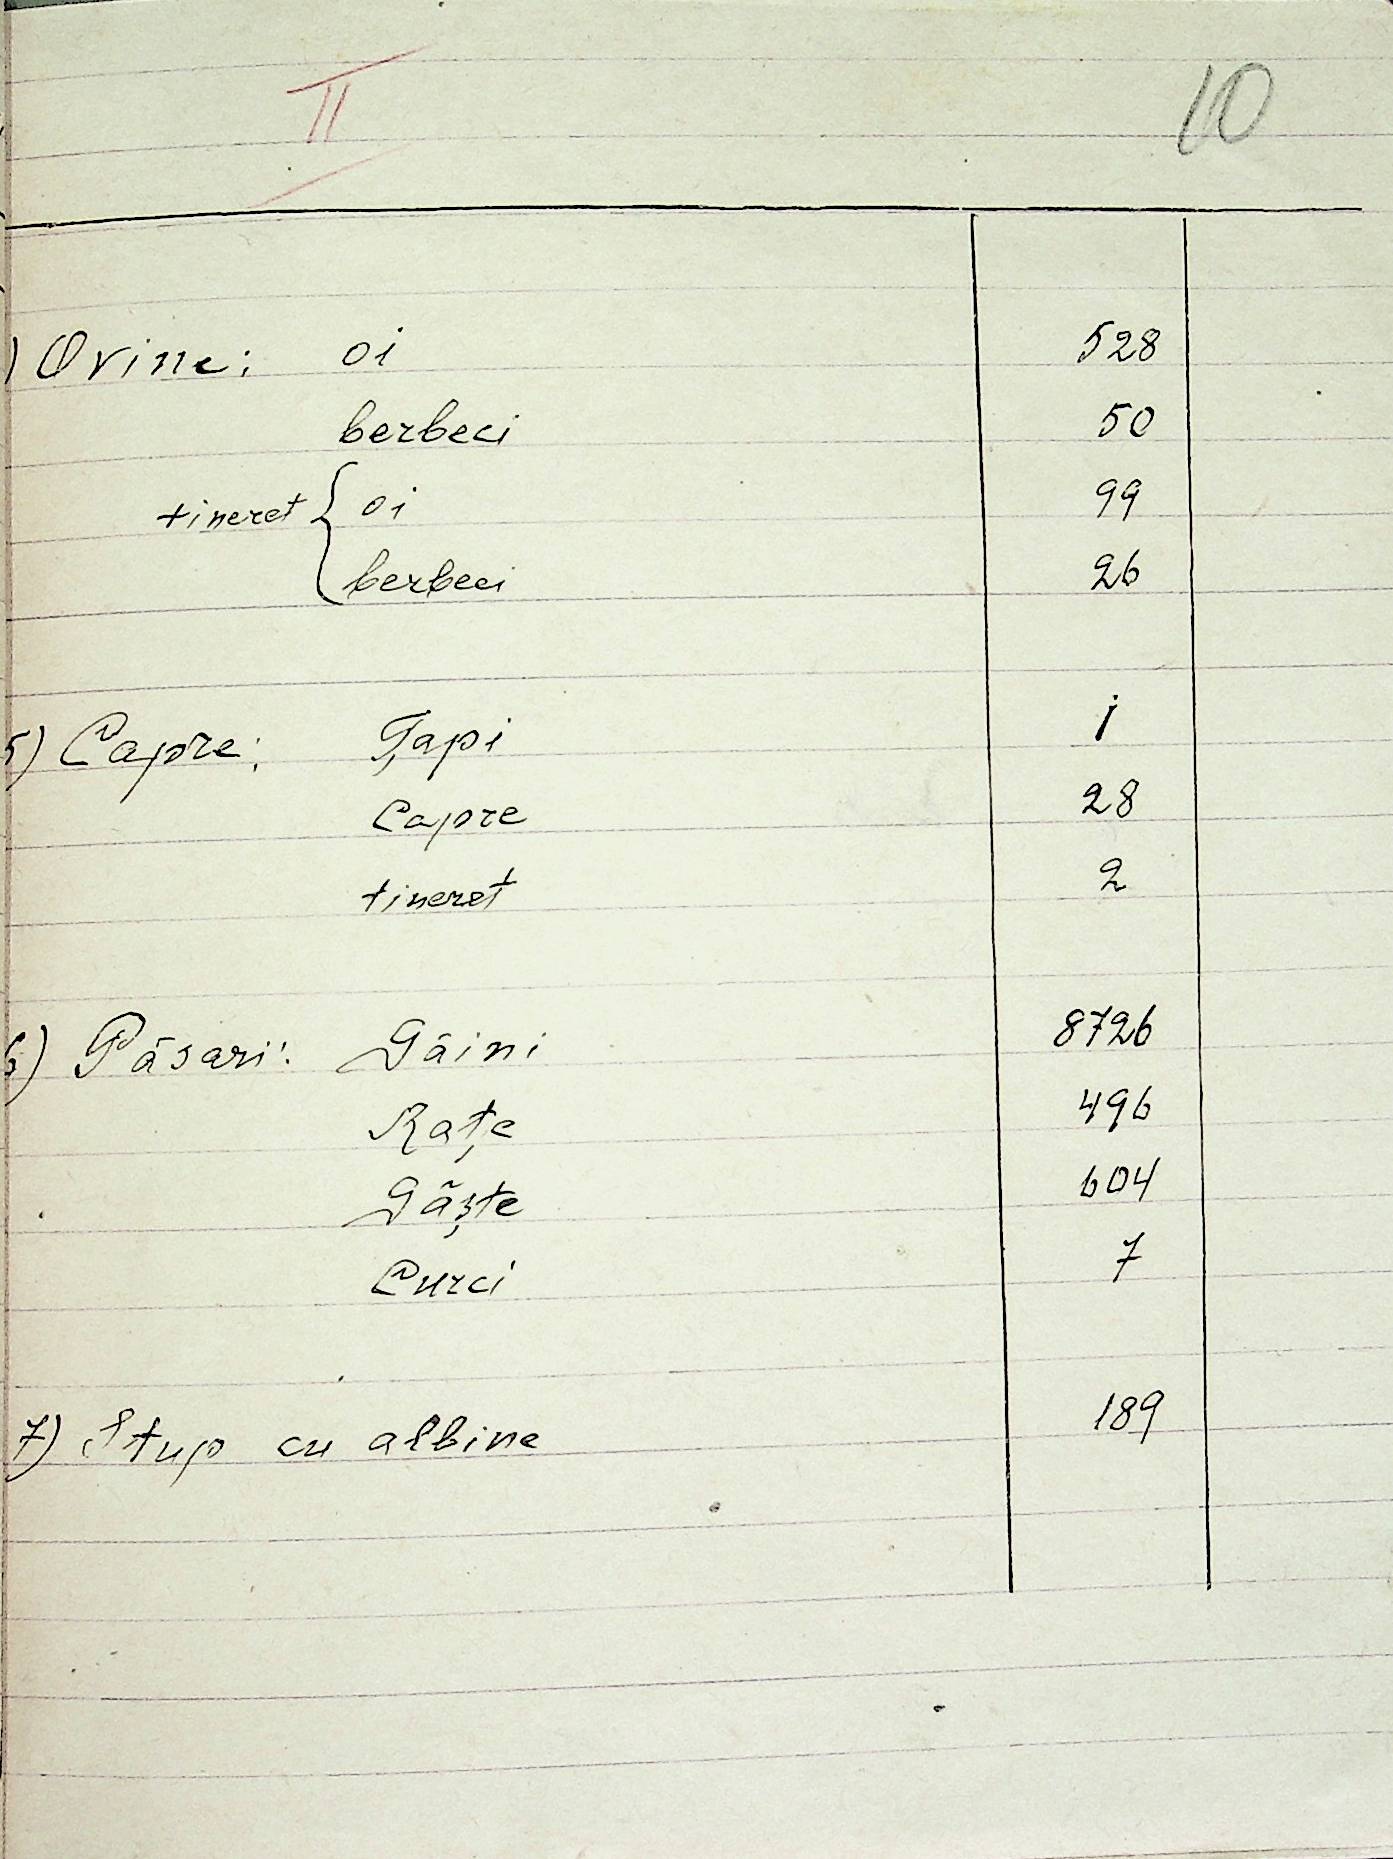 II 10
) Ovine: oi 528
berbeci 50
tineret { oi 99
berbeci 26
5) Capre: Țapi 1
Capre 28
tineret 2
6) Păsari: Găini 8726
Rațe 496
Găște 604
Curci 7
7) Stup cu albine 189